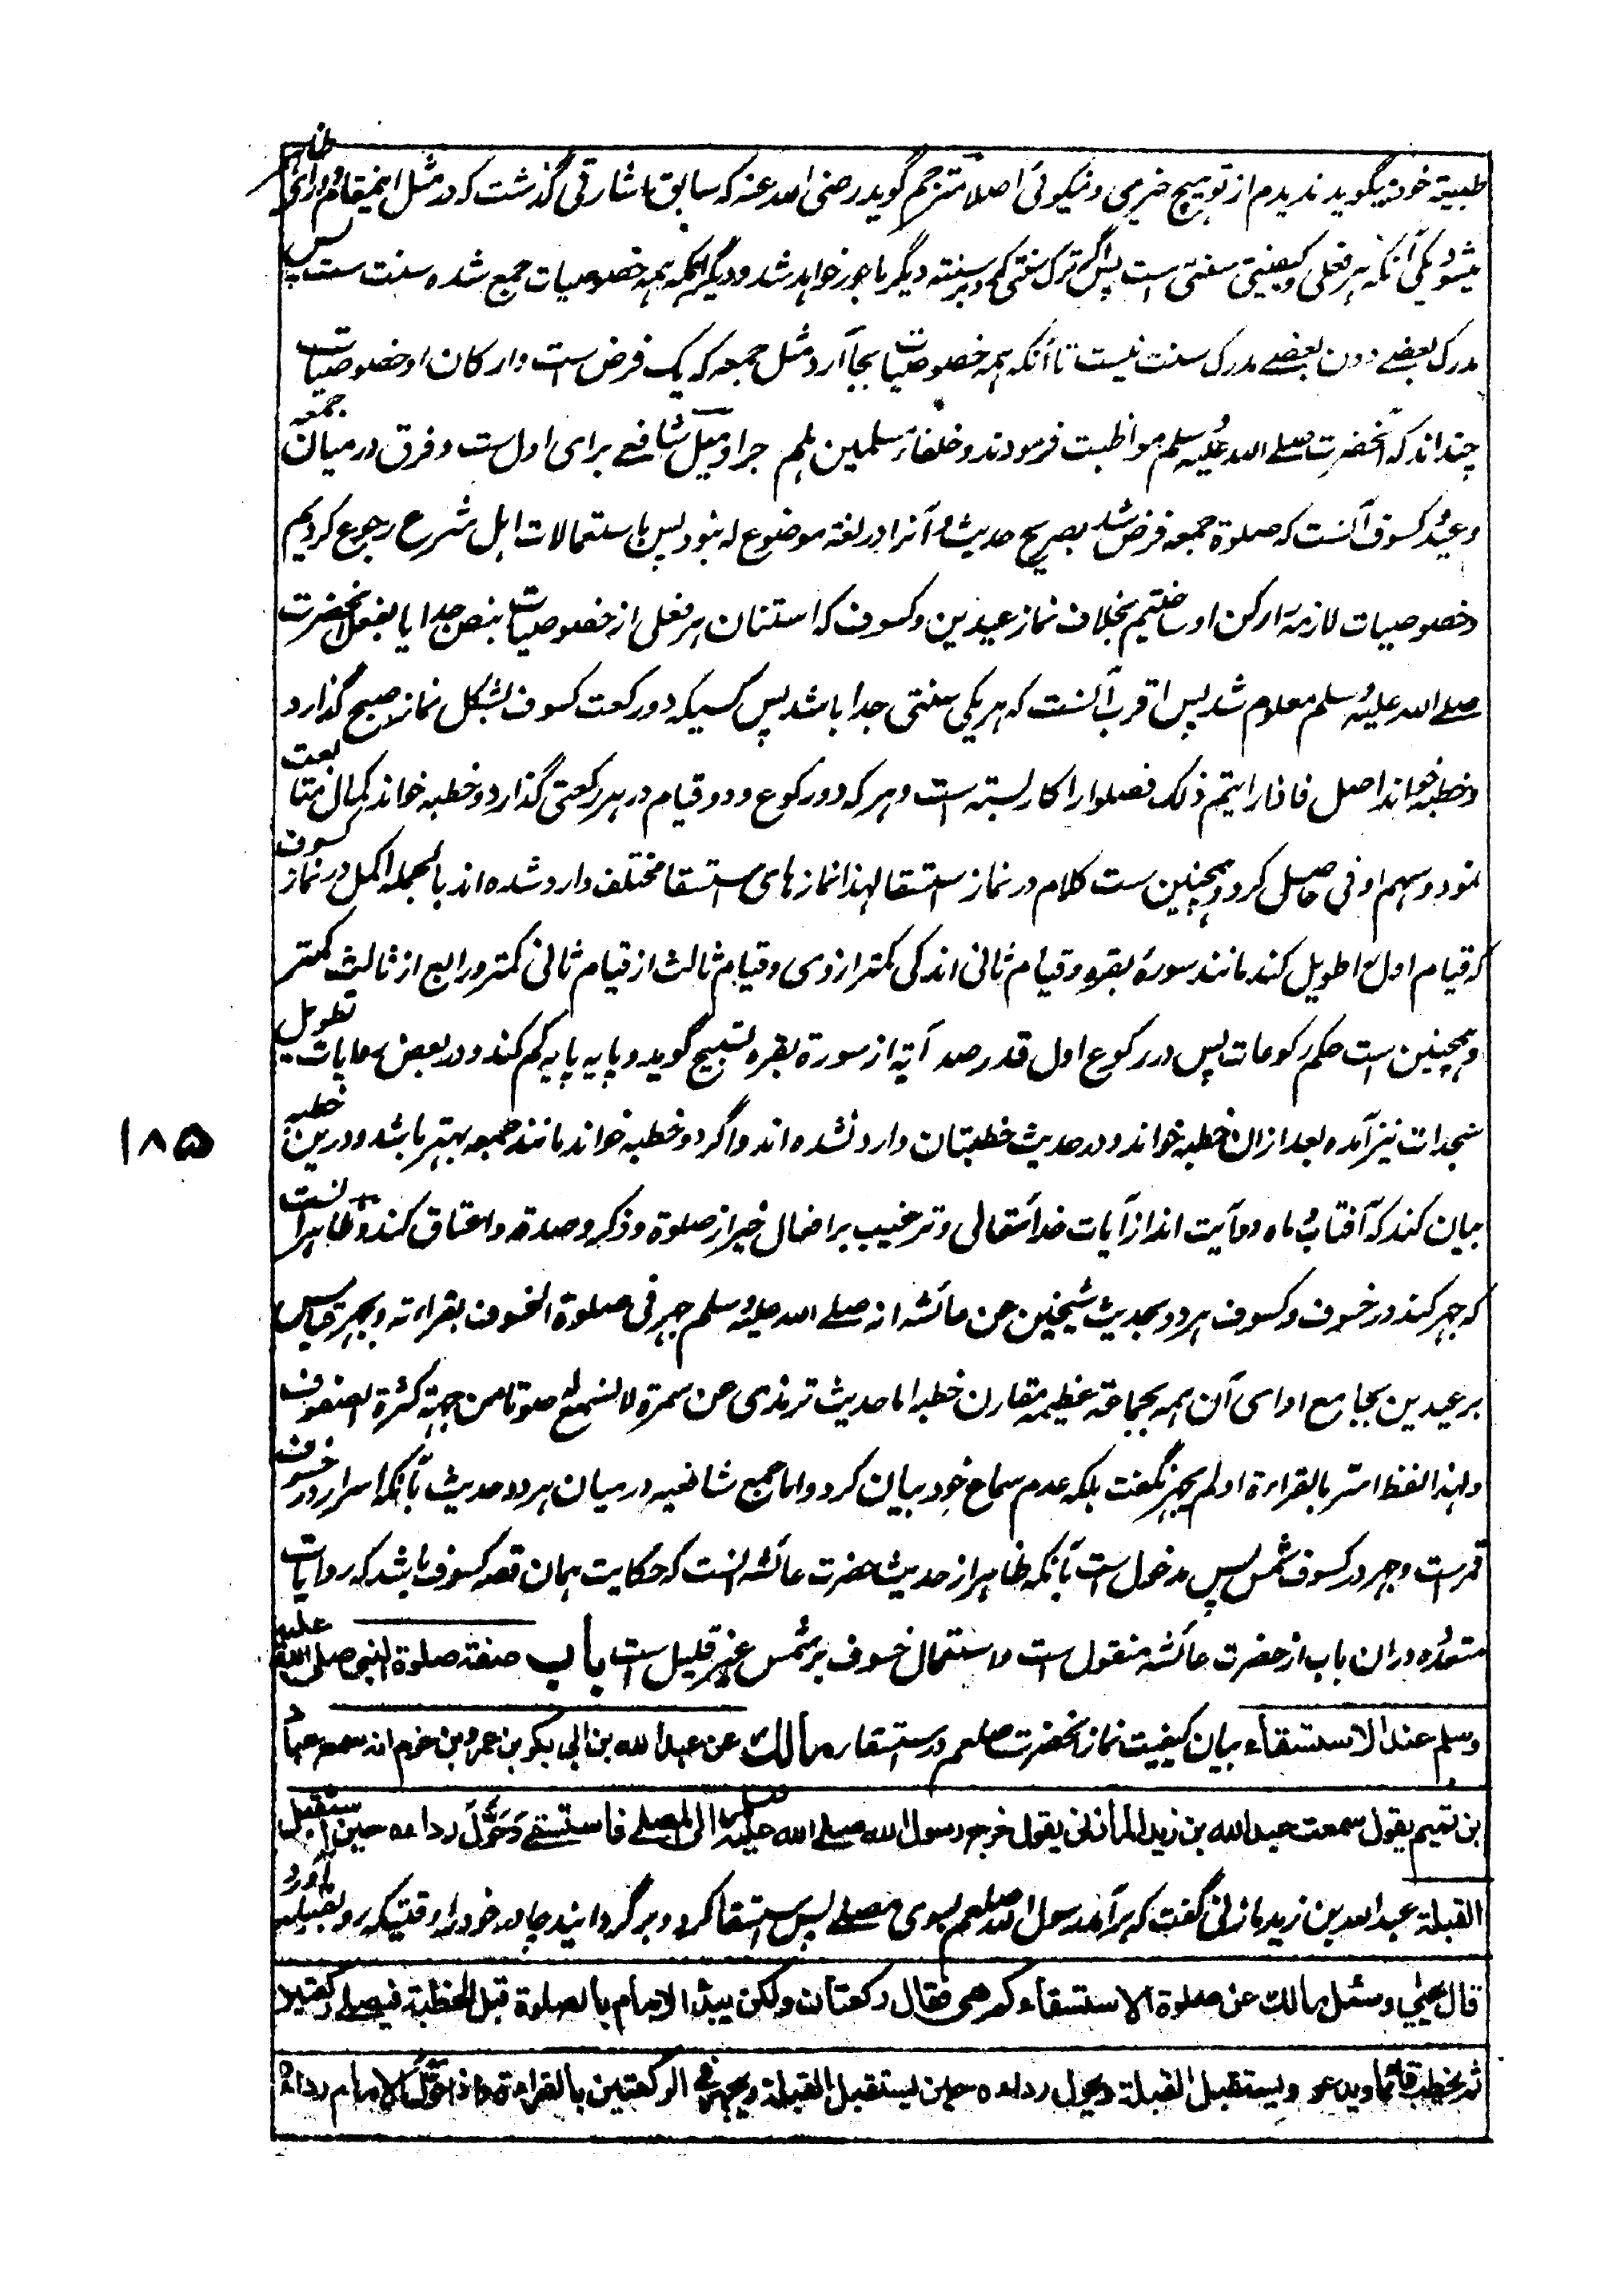 طبیعة خود بگوید ندیدم از تو هیچ خیری و نیکوئی اصلا مترجم گوید رضی الله عنه که سابق اشارتی گذشت که در مثل اینمقام دو رای ظاهر
میشود یکی آنکه هر فعلی و کیفیتی سنتی است پس اگر ترک سنتی کرد بسنته دیگر ماجور خواهد شد و دیگر آنکه همه خصوصیات جمع شده سنت ست پس
مدرک بعضے دون بعضے مدرک سنت نیست تا آنکه همه خصوصیات بجا آرد مثل جمعه که یک فرض است و ارکان او خصوصیات
چند اند که آنحضرت صلے الله علیه وسلم مواظبت فرمودند و خلفاء مسلمین هلم جرا و میل شافعے برای اول ست و فرق در میان جمعه
و عید و کسوف آنست که صلوة جمعه فرض شد بصریح حدیث و آنرا در لغة موضوع له نبود پس باستعمالات اهل شرع رجوع کردیم
و خصوصیات لازمه را رکن او ساختیم بخلاف نماز عیدین و کسوف که استنان هر فعلی از خصوصیات بنص جدا یا بفعل آنحضرت
صلے الله علیه وسلم معلوم شد پس اقرب آنست که هر یکی سنتی جدا باشد پس کسیکه دو رکعت کسوف بشکل نماز صبح گذارد
و خطبه خواند اصل فاذا رایتم ذلک فصلوا را کار بسته است و هر که دو رکوع و دو قیام در هر رکعتی گذارد و خطبه خواند کمال متابعت
نمود و سهم اوفی حاصل کرد و همچنین ست کلام در نماز استسقا لهذا نمازهای استسقا مختلف وارد شده اند بالجمله اکمل در نماز کسوف
که قیام اول را طویل کند مانند سورۀ بقره و قیام ثانی اندکی کمتر از وی و قیام ثالث از قیام ثانی کمتر و رابع از ثالث کمتر
و همچنین است حکم رکوعات پس در رکوع اول قدر صد آیة از سورة بقره تسبیح گوید و پایه پایه کم کند و در بعض روایات تطویل
سجدات نیز آمده بعد ازان خطبه خواند و در حدیث خطبتان وارد نشده اند و اگر دو خطبه خواند مانند جمعه بهتر باشد و درین خطبه
بیان کند که آفتاب و ماه دو آیت اند از آیات خدا تعالی و ترغیب بر افعال خیر از صلوة و ذکر و صدقه و اعتاق کند و ظاهر آنست
که جهر کند در خسوف و کسوف هر دو بحدیث شیخین عن عائشه انه صلے الله علیه وسلم جهر فی صلوة الخسوف بقراءته و بجهر قیاس
بر عیدین بجامع ادای آن همه بجماعة عظیمه مقارن خطبه اما حدیث ترمذی عن سمرة لا نسمع له صوتا من جهة کثرة الصفوف
و لهذا لفظ اسر بالقراءة او لم یجهر نگفت بلکه عدم سماع خود بیان کرد و اما جمع شافعیه در میان هر دو حدیث بآنکه اسرار در خسوف
قمر است و جهر در کسوف شمس پس مدخول است بآنکه ظاهر از حدیث حضرت عائشه آنست که حکایت همان قصه کسوف باشد که روایات
متعدده دران باب از حضرت عائشه منقول ست و استعمال خسوف بر شمس غیر قلیل ست باب صفة صلوة النبی صلی الله علیه
وسلم عند الاستسقاء بیان کیفیت نماز آنحضرت صلعم در استسقاء مالك عن عبد الله بن ابی بکر بن عمرو بن حزم انه سمع عباد
بن تمیم یقول سمعت عبد الله بن زید المازنی یقول خرج رسول الله صلے الله علیه وسلم الی المصلے فاستسقے وحوّل رداءه حین استقبل
القبلة عبد الله بن زید مازنی گفت که برآمد رسول الله صلعم بسوی مصلے پس استسقا کرد و برگردانید چادر خود را وقتیکه رو بقبله آورد
قال یحیی وسئل مالك عن صلوة الاستسقاء کم هی فقال رکعتان ولکن یبدأ الامام بالصلوة قبل الخطبة فیصلے رکعتین
ثم یخطب قائما ویدعو ویستقبل القبلة ویحول رداءه حین یستقبل القبلة ویجهر فی الرکعتین بالقراءة واذا حوّل الامام رداءه
١٨٥